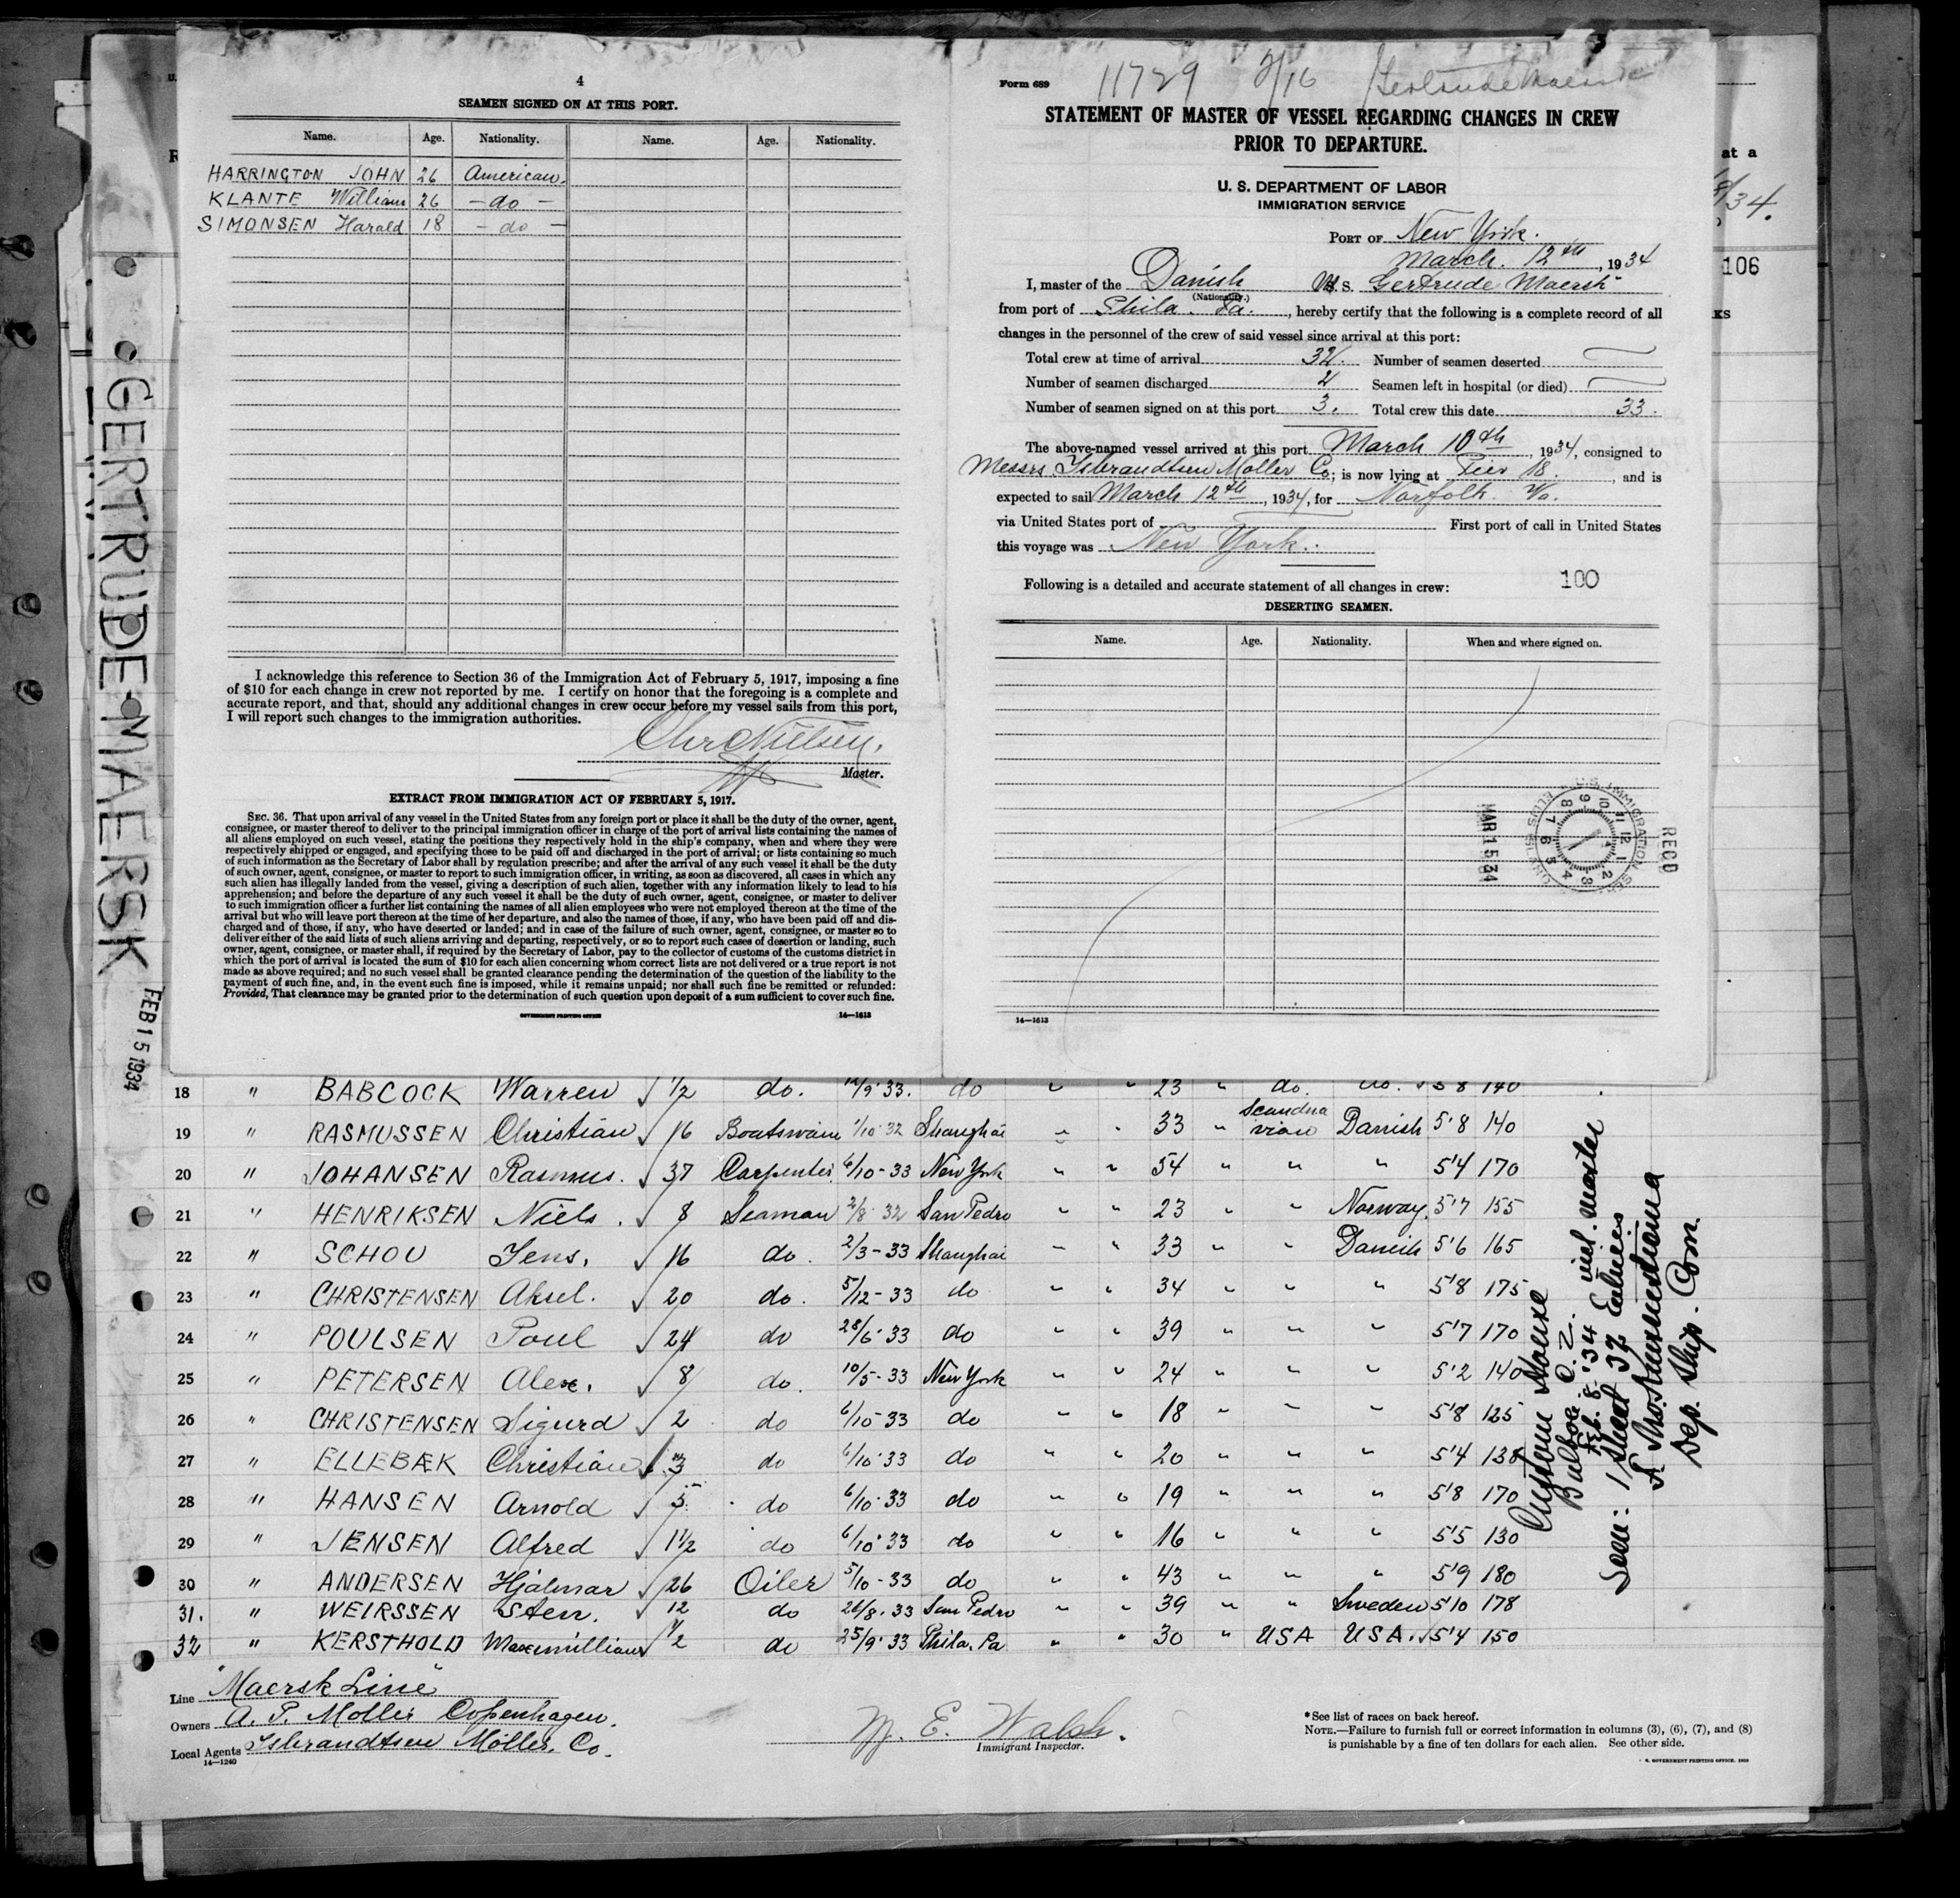 4
SEAMEN SIGNED ON AT THIS PORT.
Name. Age. Nationality. Name. Age. Nationality.
HARRINGTON JOHN 26 American.
KLANTE William 26 - do -
SIMONSEN Harald 18 - do -
I acknowledge this reference to Section 36 of the Immigration Act of February 5, 1917, imposing a fine
of $10 for each change in crew not reported by me. I certify on honor that the foregoing is a complete and
accurate report, and that, should any additional changes in crew occur before my vessel sails from this port,
I will report such changes to the immigration authorities.
Chr Nielsen.
Master.
EXTRACT FROM IMMIGRATION ACT OF FEBRUARY 5, 1917.
SEC. 36. That upon arrival of any vessel in the United States from any foreign port or place it shall be the duty of the owner, agent,
consignee, or master thereof to deliver to the principal immigration officer in charge of the port of arrival lists containing the names of
all aliens employed on such vessel, stating the positions they respectively hold in the ship's company, when and where they were
respectively shipped or engaged, and specifying those to be paid off and discharged in the port of arrival; or lists containing so much
of such information as the Secretary of Labor shall by regulation prescribe; and after the arrival of any such vessel it shall be the duty
of such owner, agent, consignee, or master to report to such immigration officer, in writing, as soon as discovered, all cases in which any
such alien has illegally landed from the vessel, giving a description of such alien, together with any information likely to lead to his
apprehension; and before the departure of any such vessel it shall be the duty of such owner, agent, consignee, or master to deliver
to such immigration officer a further list containing the names of all alien employees who were not employed thereon at the time of the
arrival but who will leave port thereon at the time of her departure, and also the names of those, if any, who have been paid off and dis-
charged and of those, if any, who have deserted or landed; and in case of the failure of such owner, agent, consignee, or master so to
deliver either of the said lists of such aliens arriving and departing, respectively, or so to report such cases of desertion or landing, such
owner, agent, consignee, or master shall, if required by the Secretary of Labor, pay to the collector of customs of the customs district in
which the port of arrival is located the sum of $10 for each alien concerning whom correct lists are not delivered or a true report is not
made as above required; and no such vessel shall be granted clearance pending the determination of the question of the liability to the
payment of such fine, and, in the event such fine is imposed, while it remains unpaid; nor shall such fine be remitted or refunded:
Provided, That clearance may be granted prior to the determination of such question upon deposit of a sum sufficient to cover such fine.
GOVERNMENT PRINTING OFFICE 14—1613
Form 689 11729 2/16 Gertrude Maersk
STATEMENT OF MASTER OF VESSEL REGARDING CHANGES IN CREW
PRIOR TO DEPARTURE.
U. S. DEPARTMENT OF LABOR
IMMIGRATION SERVICE
PORT OF New York.
March. 12th, 1934
I, master of the Danish M. S. Gertrude Maersk
(Nationality.)
from port of Phila. Pa., hereby certify that the following is a complete record of all
changes in the personnel of the crew of said vessel since arrival at this port:
Total crew at time of arrival 32. Number of seamen deserted
Number of seamen discharged 2 Seamen left in hospital (or died)
Number of seamen signed on at this port 3. Total crew this date 33.
The above-named vessel arrived at this port March 10th, 1934, consigned to
Messrs Isbrandtsen Moller Co; is now lying at Pier 18., and is
expected to sail March 12th, 1934, for Norfolk. Va.
via United States port of First port of call in United States
this voyage was New York.
Following is a detailed and accurate statement of all changes in crew: 100
DESERTING SEAMEN.
Name. Age. Nationality. When and where signed on.
RECD
U.S. IMMIGRATION SER. ELLIS ISLAND
MAR 15 34
14—1613
at a
34.
106
KS
GERTRUDE MAERSK
FEB 15 1934
18 " BABCOCK Warren √ 1/2 do. 12/9-33. do " " 23 " do. do. √ 5'8 140
19 " RASMUSSEN Christian √ 16 Boatswain 1/10-32 Shanghai " " 33 " Scandinavian Danish 5'8 140
20 " JOHANSEN Rasmus. √ 37 Carpenter 6/10-33 New York " " 54 " " " 5'4 170
21 " HENRIKSEN Niels. √ 8 Seaman 2/8-32 San Pedro " " 23 " " Norway 5'7 155
22 " SCHOU Jens. √ 16 do. 2/3-33 Shanghai " " 33 " " Danish 5'6 165
23 " CHRISTENSEN Aksel. √ 20 do. 5/12-33 do " " 34 " " " 5'8 175
24 " POULSEN Poul √ 24 do 28/6-33 do " " 39 " " " 5'7 170
25 " PETERSEN Alex. √ 8 do. 10/5-33 New York " " 24 " " " 5'2 140
26 " CHRISTENSEN Sigurd √ 2 do 6/10-33 do " " 18 " " " 5'8 125
27 " ELLEBÆK Christian √ 3 do 6/10-33 do " " 20 " " " 5'4 138
28 " HANSEN Arnold √ 5 do 6/10-33 do " " 19 " " " 5'8 170
29 " JENSEN Alfred √ 1 1/2 do 6/10-33 do " " 16 " " " 5'5 130
30 " ANDERSEN Hjalmar √ 26 Oiler 5/10-33 do " " 43 " " " 5'9 180
31. " WEIRSSEN Sten. √ 12 do 26/8-33 San Pedro " " 39 " " Sweden 5'10 178
32 " KERSTHOLD Maximillian √ 1/2 do 25/9-33 Phila. Pa " " 30 " USA USA. √ 5'4 150
Custom House
Balboa C. Z.
Feb. 8. '34 incl. Master
Seen: 1 Sheet 32 Entries
Dep. Ship. Com.
Line "Maersk Line"
Owners A. P. Moller Copenhagen.
Local Agents Isbrandtsen Möller. Co.
14—1240
M. E. Walsh.
Immigrant Inspector.
*See list of races on back hereof.
NOTE.—Failure to furnish full or correct information in columns (3), (6), (7), and (8)
is punishable by a fine of ten dollars for each alien. See other side.